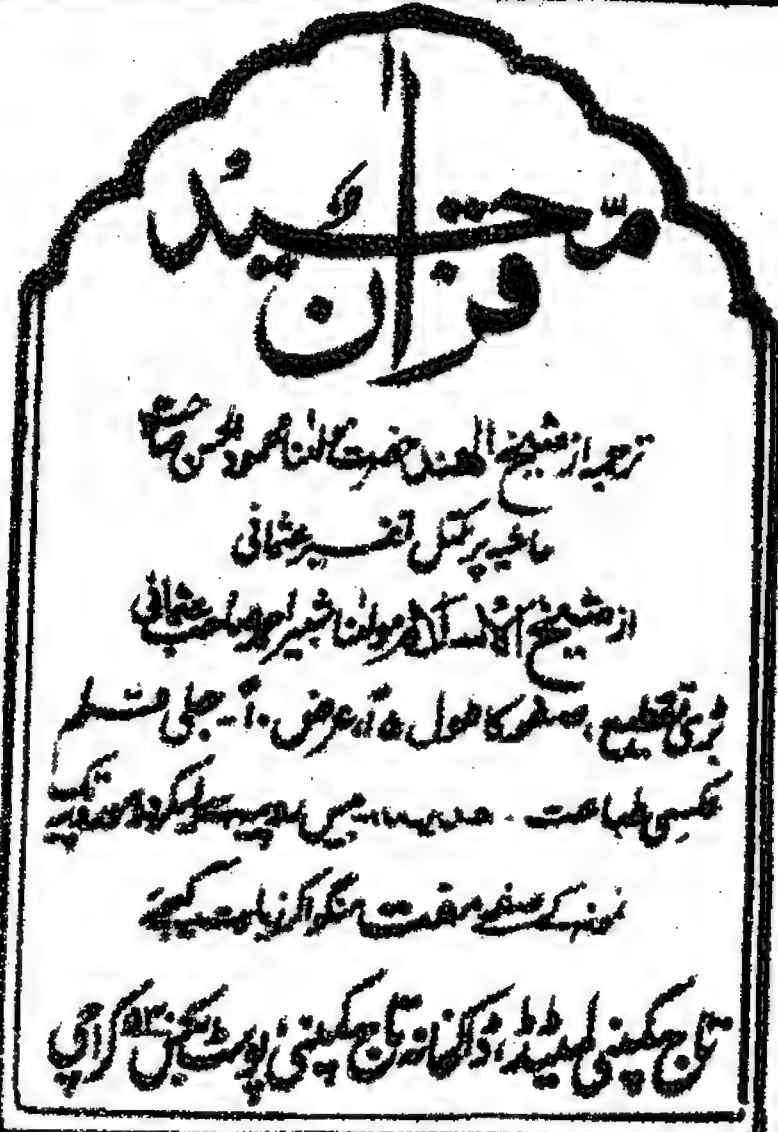 قرآن مجید
ترجمہ از شیخ الہند حضرت مولٰنا محمود الحسن صاحبؒ
حاشیہ پر مکمل تفسیر عثمانی
از شیخ الاسلام مولٰنا شبیر احمد صاحب عثمانی
بڑی تقطیع، صفحہ کا طول عرض جلی قلم
عکسی طباعت۔ ہدیہ بیس روپیہ سے لیکر روپیہ تک
نمونہ کے صفحے مفت منگوا کر زیارت کیجئے
تاج کمپنی لمیٹڈ، ڈاکخانہ تاج کمپنی پوسٹ بکس کراچی